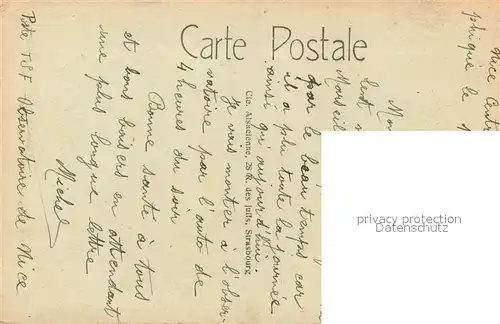 Carte Postale
Nice
phique le
Mon
Marseil
par le beau temps car
il a plu toute la journée
ainsi qu'aujourd'hui.
Je vais monter à l'obser-
vatoire par l'auto de
4 heures du soir.
Bonne santé à tous
et bons baisers en attendant
une plus longue lettre
Michel
Poste T.S.F Observatoire de Nice
Cie. Alsacienne, 28 R. des Juifs, Strasbourg
privacy protection
Datenschutz